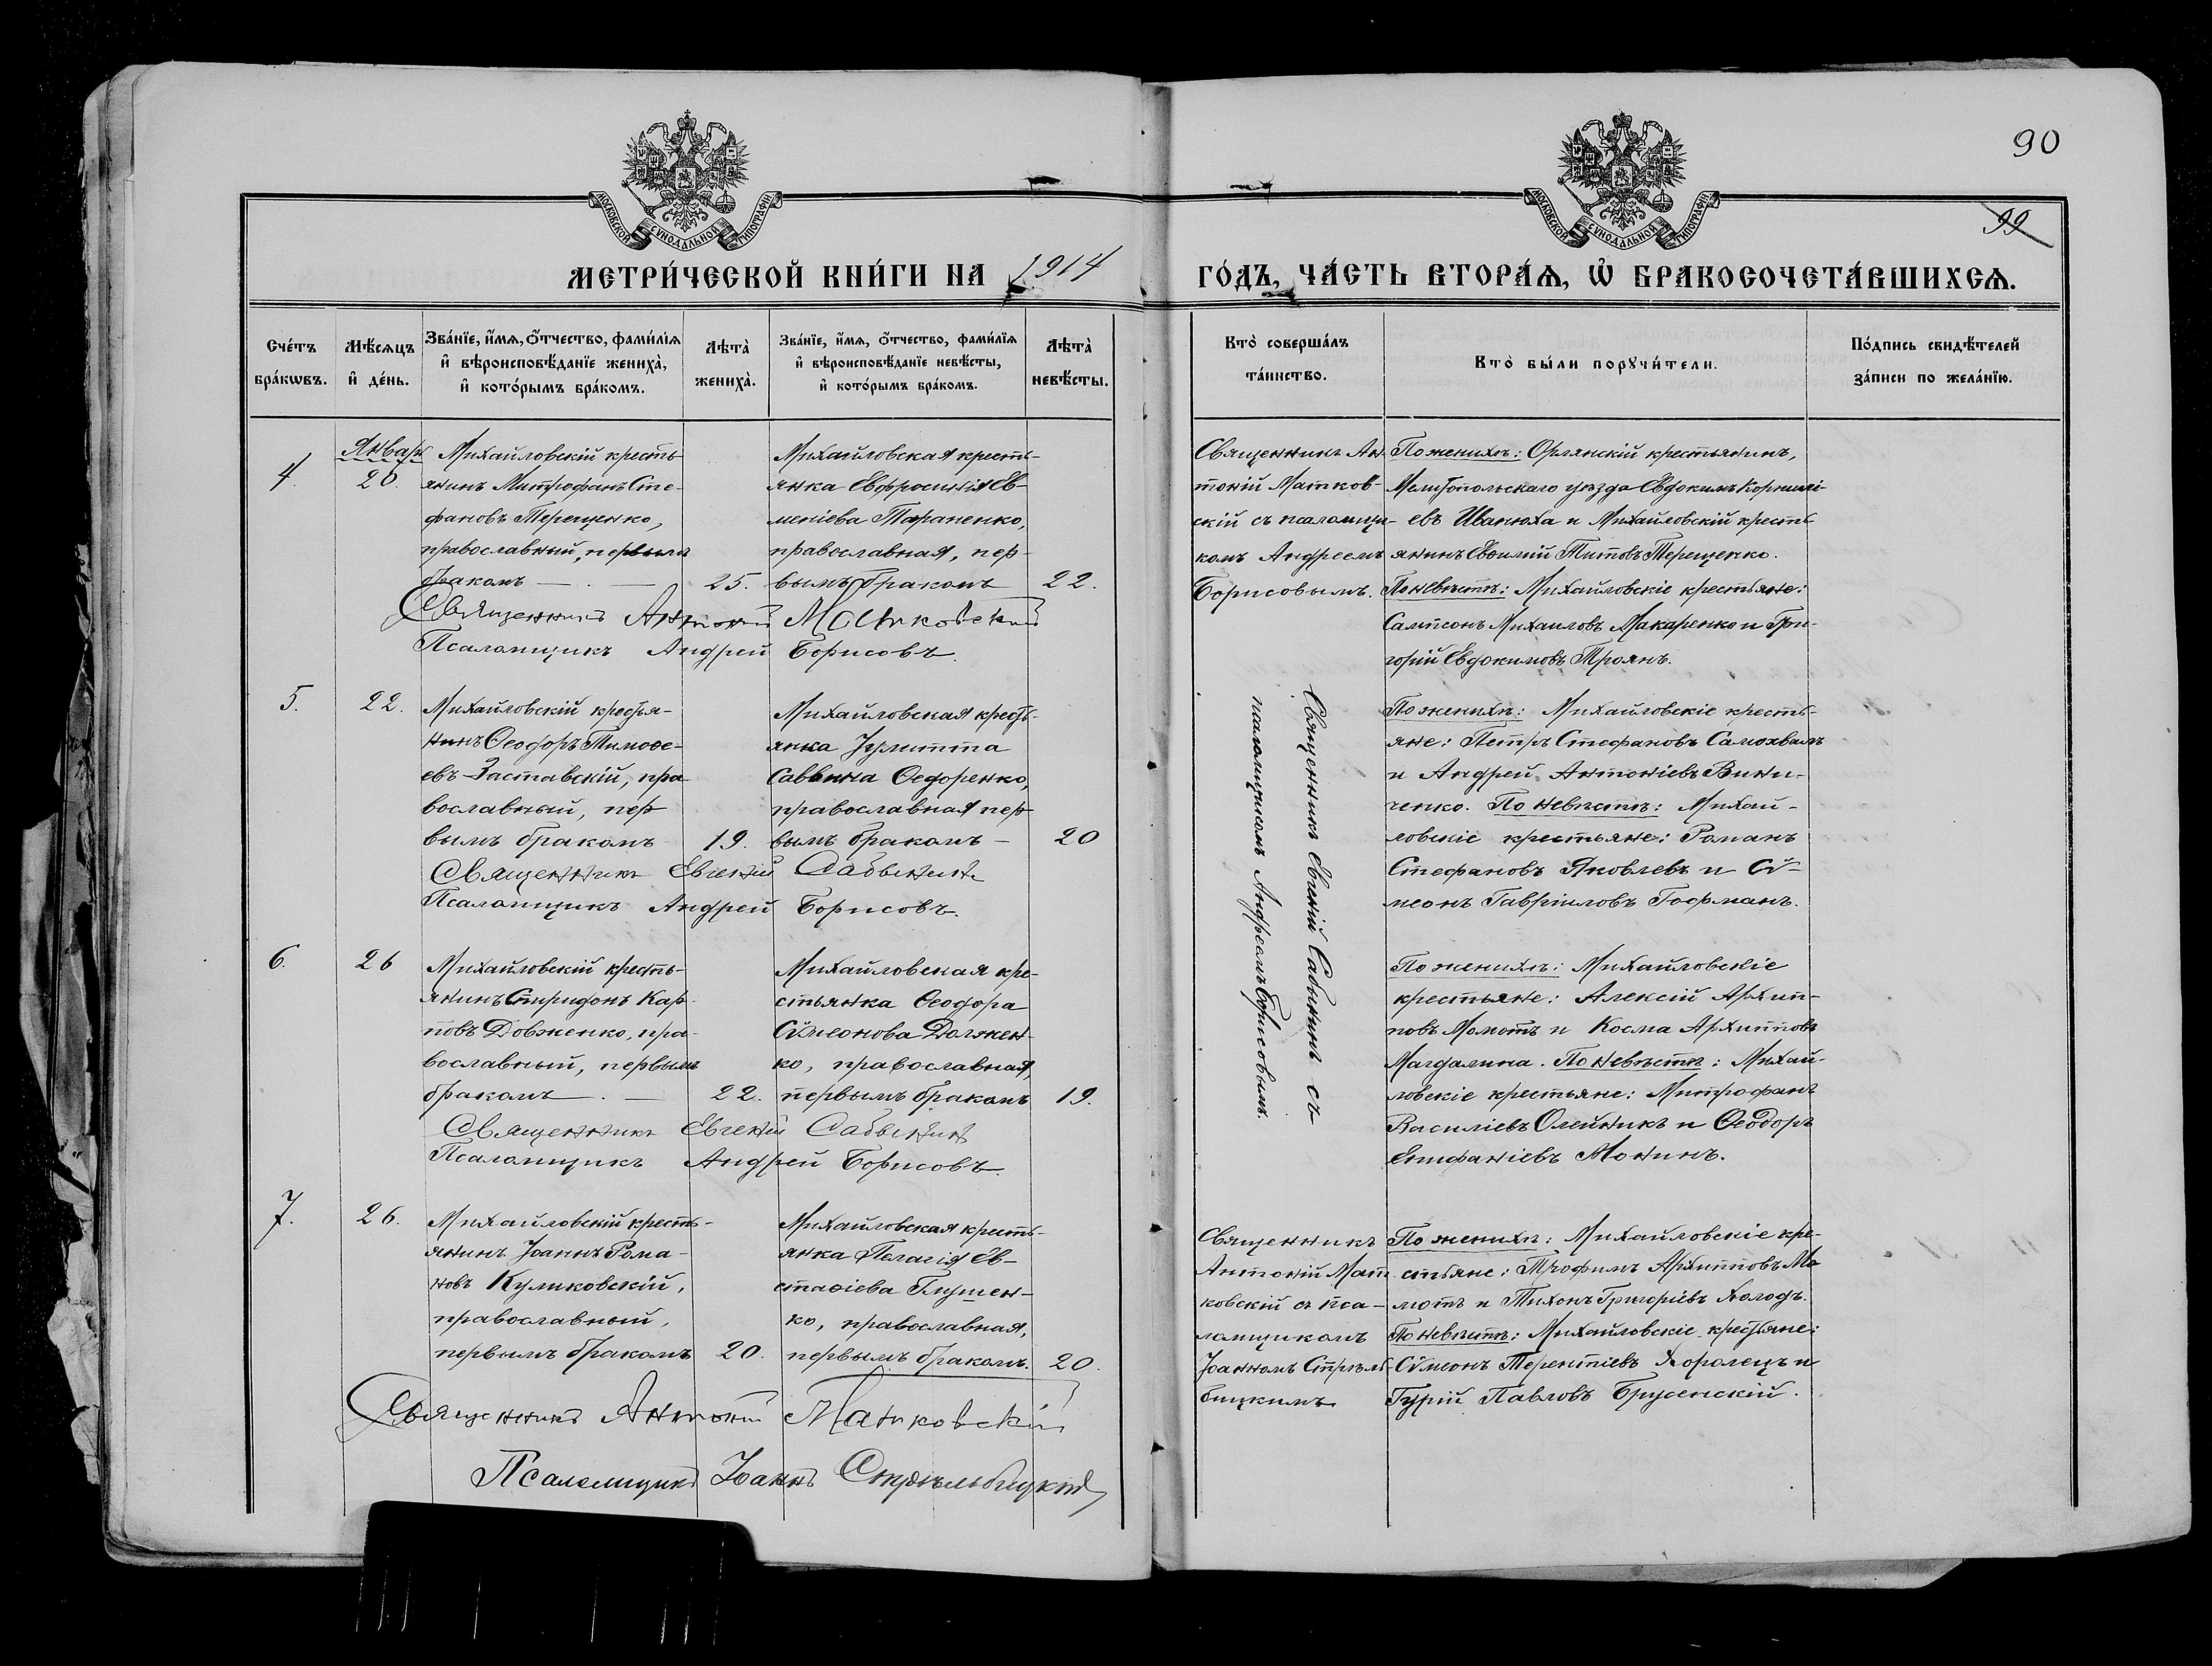 90
99
МОСКОВСКОЙ СѴНОДАЛЬНОЙ ТИПОГРАФІИ
МОСКОВСКОЙ СѴНОДАЛЬНОЙ ТИПОГРАФІИ
МЕТРИ́ЧЕСКОЙ КНИ́ГИ НА 1914 ГО́ДЪ, ЧА́СТЬ ВТОРА́Ѧ, Ѡ҆ БРАКОСОЧЕТА́ВШИХСѦ.
Сче́тъ
бра́кѡвъ.
Мѣ́сѧцъ
и҆ де́нь.
Зва́нїе, и҆́мѧ, ѻ҆́тчество, фами́лїѧ
и҆ вѣроисповѣ́данїе жениха̀,
и҆ кото́рымъ бра́комъ.
Лѣта̀
жениха̀.
Зва́нїе, и҆́мѧ, ѻ҆́тчество, фами́лїѧ
и҆ вѣроисповѣ́данїе невѣ́сты,
и҆ кото́рымъ бра́комъ.
Лѣта̀
невѣ́сты.
Кто̀ соверша́лъ
та́инство.
Кто̀ бы́ли порꙋчи́тели.
По́дпись свидѣ́телей
за́писи по жела́нїю.
4.
Январь
20.
Михайловскій кресть-
янинъ Митрофанъ Сте-
фановъ Терещенко,
православный, первымъ
бракомъ
25.
Михайловская кресть-
янка Евфросинія Ев-
меніева Тараненко,
православная, пер-
вымъ бракомъ
22.
Священникъ Ан-
тоній Матков-
скій съ псаломщи-
комъ Андреемъ
Борисовымъ.
По женихѣ: Орлянскій крестьянинъ,
Мелитопольскаго уѣзда Евдокимъ Корниліе-
евъ Иванюха и Михайловскій кресть-
янинъ Евѳимій Титовъ Терещенко.
По невѣстѣ: Михайловскіе крестьяне:
Сампсонъ Михаиловъ Макаренко и Гри-
горій Евдокимовъ Троянъ.
Священникъ Антоній Матковскій
Псаломщикъ Андрей Борисовъ.
5.
22.
Михайловскій крестья-
нинъ Ѳеодоръ Тимоѳе-
евъ Заставскій, пра-
вославный, пер-
вымъ бракомъ
19.
Михайловская кресть-
янка Іулитта
Саввина Ѳедоренко,
православная пер-
вымъ бракомъ
20
Священникъ Евгеній Сабынинъ съ
псаломщикомъ Андреемъ Борисовымъ.
По женихѣ: Михайловскіе кресть-
яне: Петръ Стефановъ Самохвалъ
и Андрей Антоніевъ Вини-
ченко. По невѣстѣ: Михай-
ловскіе крестьяне: Романъ
Стефановъ Яковлевъ и Сѵ-
меонъ Гавріиловъ Гофманъ.
Священникъ Евгеній Сабынинъ
Псаломщикъ Андрей Борисовъ.
6.
26
Михайловскій кресть-
янинъ Спиридонъ Кар-
повъ Довженко, пра-
вославный, первымъ
бракомъ
22.
Михайловская кре-
стьянка Ѳеодора
Сѵмеонова Должен-
ко, православная,
первымъ бракомъ
19.
По женихѣ: Михайловскіе
крестьяне: Алексій Архип-
повъ Момотъ и Косма Архипповъ
Магдалина. По невѣстѣ: Михай-
ловскіе крестьяне: Митрофанъ
Василіевъ Олейникъ и Ѳеодоръ
Епифаніевъ Монинъ.
Священникъ Евгеній Сабынинъ
Псаломщикъ Андрей Борисовъ.
7.
26.
Михайловскій кресть-
янинъ Іоаннъ Рома-
новъ Куликовскій,
православный,
первымъ бракомъ
20.
Михайловская кресть-
янка Пелагія Ев-
стаѳіева Глущен-
ко, православная,
первымъ бракомъ.
20.
Священникъ
Антоній Мат-
ковскій съ пса-
ломщикомъ
Іоанномъ Стрѣль-
бицкимъ
По женихѣ: Михайловскіе кре-
стьяне: Трофимъ Архипповъ Мо-
мотъ и Тихонъ Григоріевъ Холодъ.
По невѣстѣ: Михайловскіе крестьяне:
Сѵмеонъ Терентіевъ Хоролецъ и
Гурій Павловъ Брусенскій.
Священникъ Антоній Матковскій
Псаломщикъ Іоаннъ Стрѣльбицкій